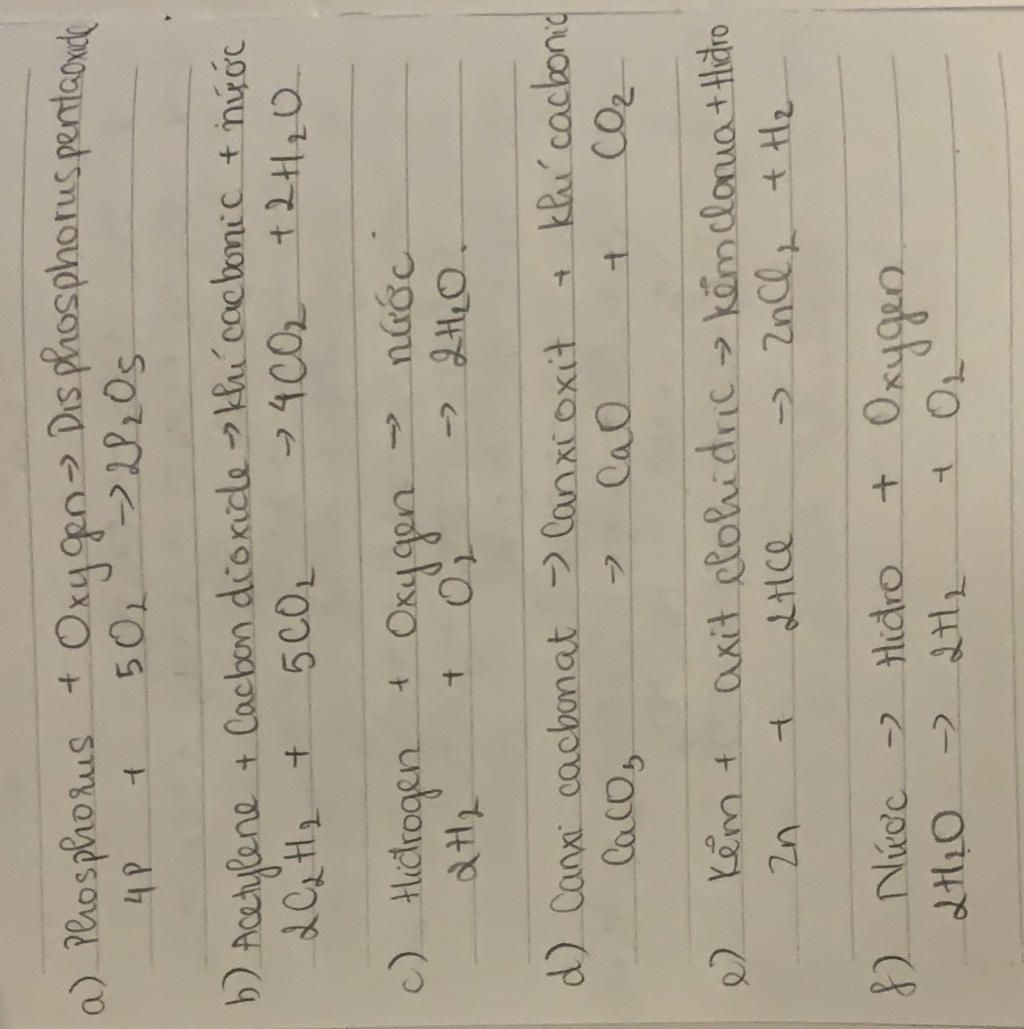 a) Phosphorus + Oxygen → Disphosphorus pentaoxide
4P + 5O₂ → 2P₂O₅
b) Acetylene + Cacbon dioxide → khí cacbonic + nước
2C₂H₂ + 5CO₂ → 4CO₂ + 2H₂O
c) Hidrogen + Oxygen → nước
2H₂ + O₂ → 2H₂O.
d) Canxi cacbonat → Canxi oxit + khí cacbonic
CaCO₃ → CaO + CO₂
e) Kẽm + axit clohidric → kẽm clorua + Hidro
Zn + 2HCl → ZnCl₂ + H₂
f) Nước → Hidro + Oxygen
2H₂O → 2H₂ + O₂